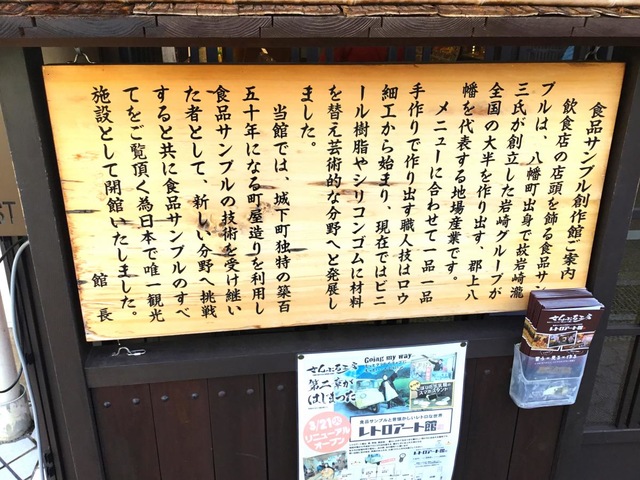 食品サンプル創作館ご案内
飲食店の店頭を飾る食品サン
プルは、八幡町出身で故岩崎瀧
三氏が創立した岩崎グループが
全国の大半を作り出す、郡上八
幡を代表する地場産業です。
メニューに合わせて一品一品
手作りで作り出す職人技はロウ
細工から始まり、現在ではビニ
ール樹脂やシリコンゴムに材料
を替え芸術的な分野へと発展し
ました。
当館では、城下町独特の築百
五十年になる町屋造りを利用し
食品サンプルの技術を受け継い
た者として、新しい分野へ挑戦
すると共に食品サンプルのすべ
てをご覧頂く為日本で唯一観光
施設として開館いたしました。
館長
Going my way
さんぷる工房
第二章が
はじまった
8/21
リニューアル
オープン
食品サンプルと昔懐かしいレトロな世界
レトロアート館
さんぷる工房
レトロアート館